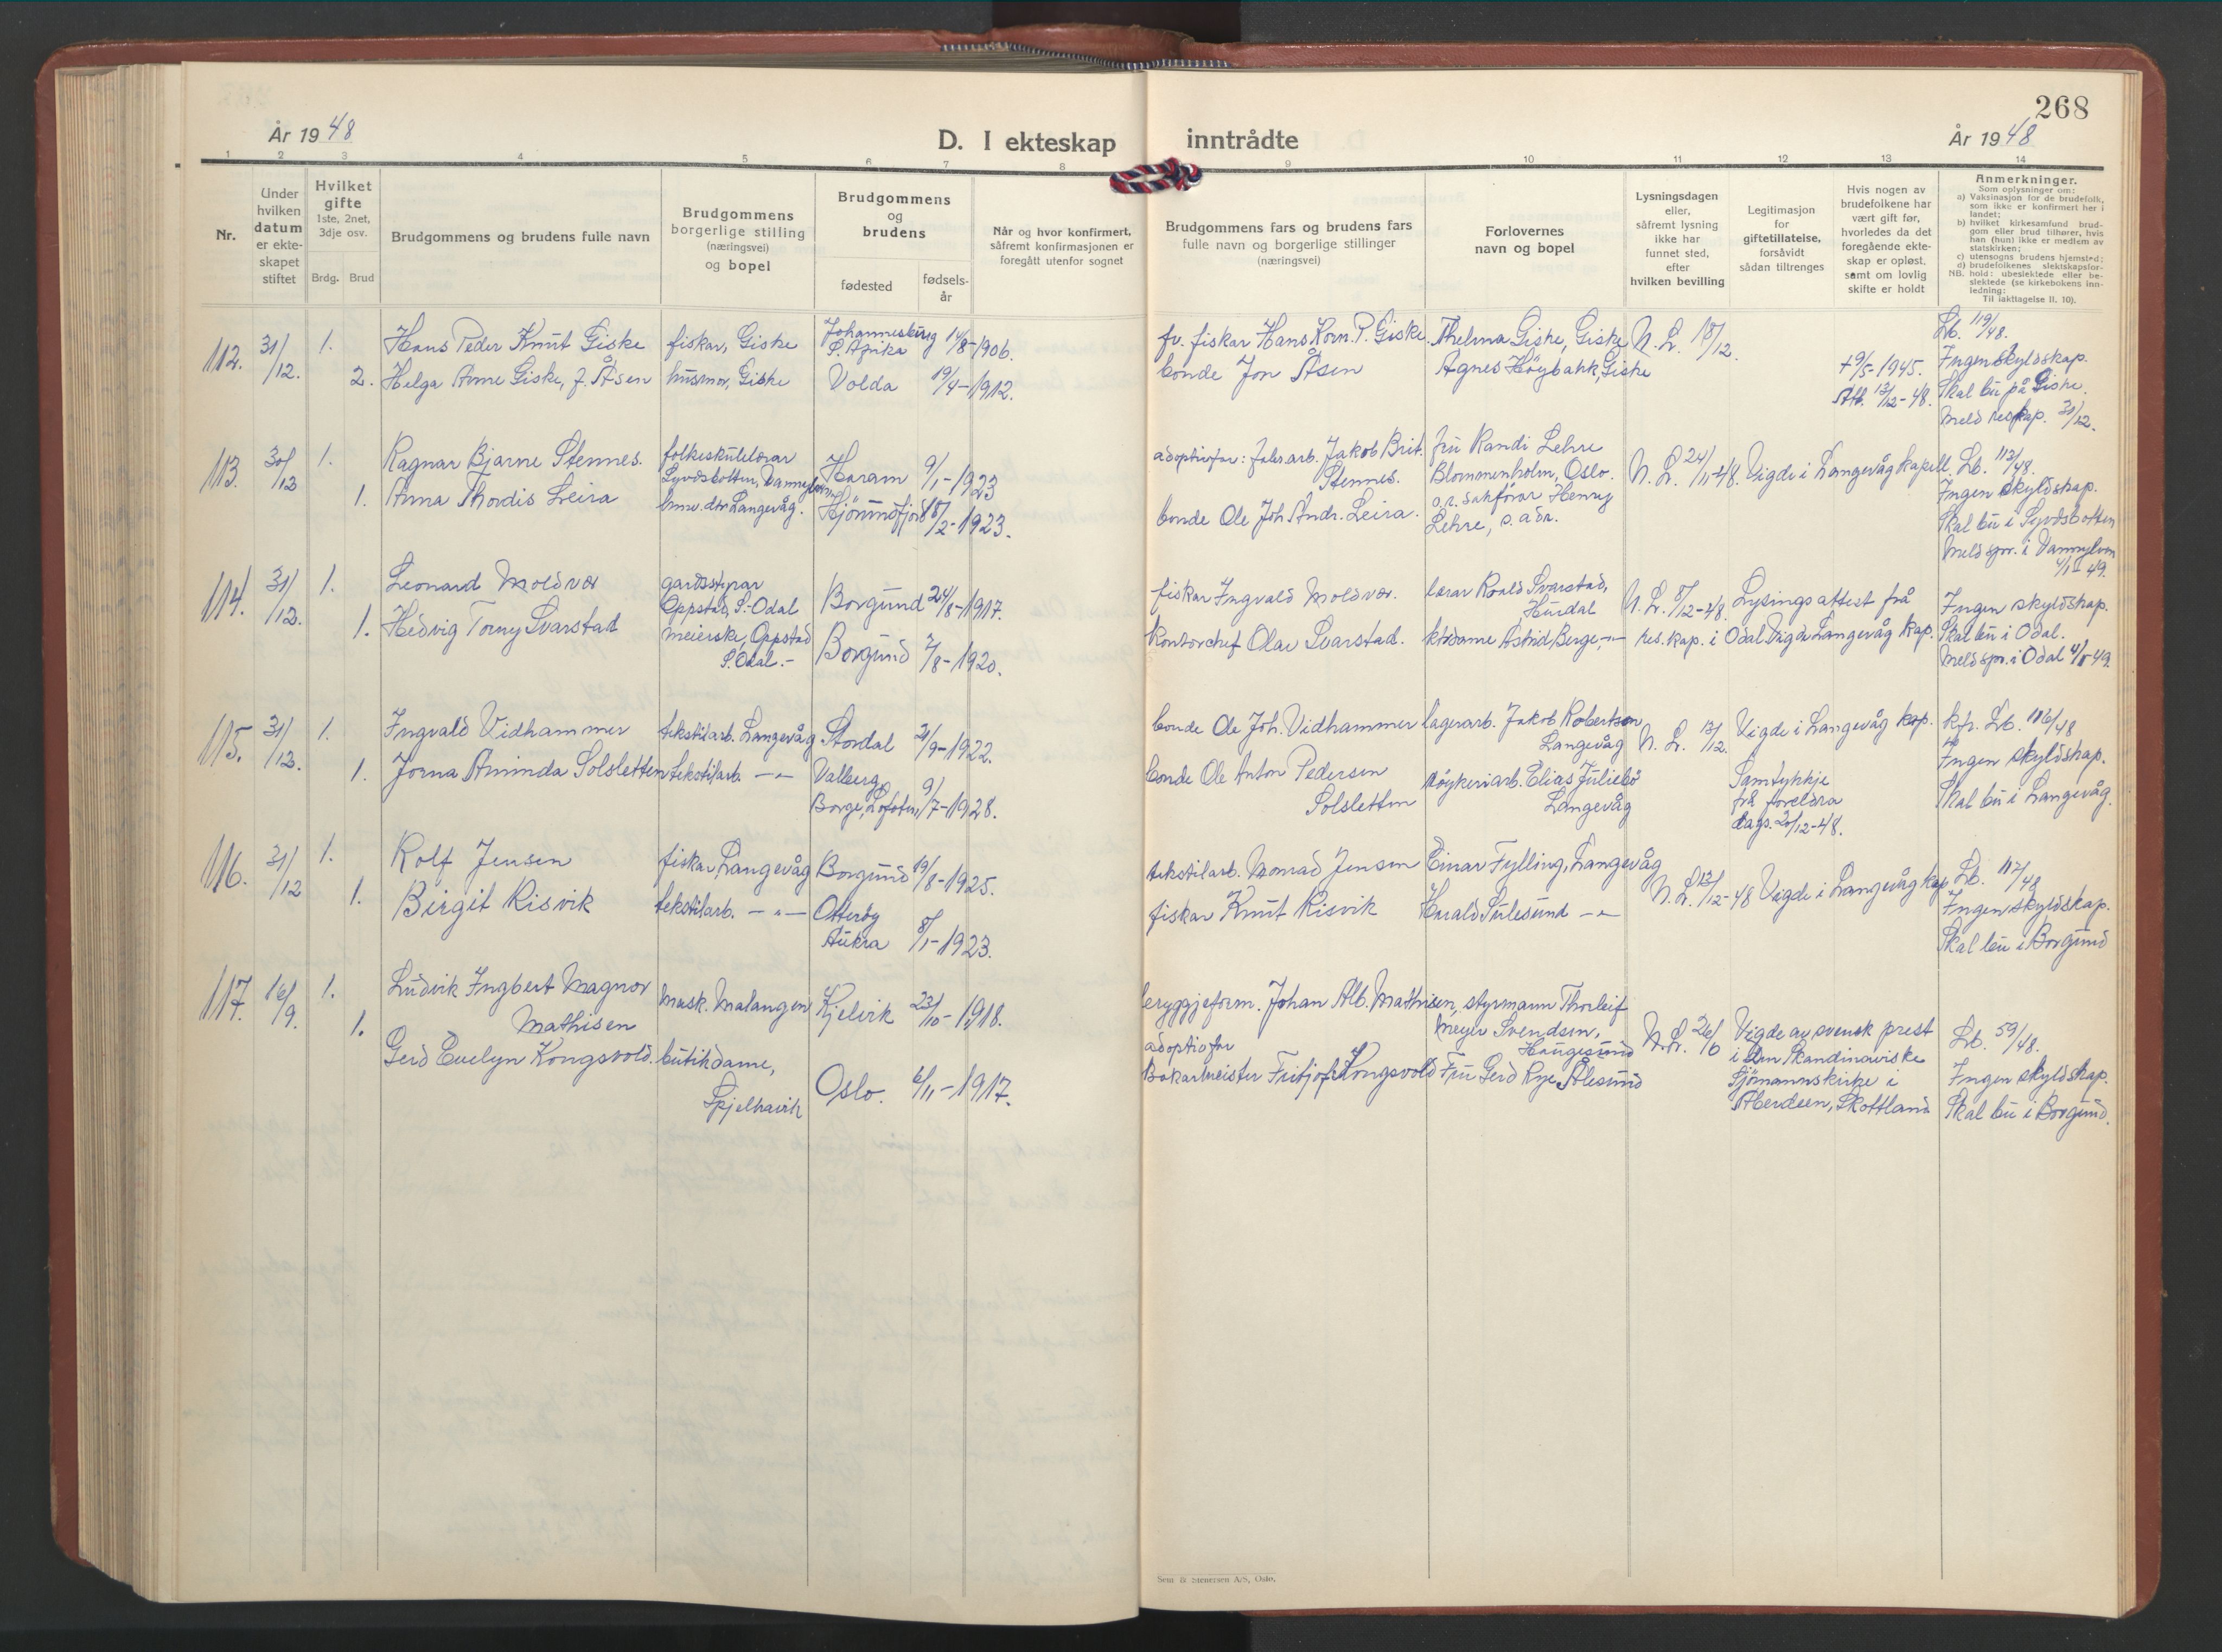 268
År 1948
D. I ekteskap inntrådte
År 1948
1 2 3 4 5 6 7 8 9 10 11 12 13 14
Nr.
Under hvilken datum er ekteskapet stiftet
Hvilket gifte
1ste, 2net, 3dje osv.
Brdg. Brud
Brudgommens og brudens fulle navn
Brudgommens borgerlige stilling (næringsvei) og bopel
Brudgommens og brudens
fødested
fødselsår
Når og hvor konfirmert, såfremt konfirmasjonen er foregått utenfor sognet
Brudgommens fars og brudens fars fulle navn og borgerlige stillinger (næringsvei)
Forlovernes navn og bopel
Lysningsdagen eller, såfremt lysning ikke har funnet sted, efter hvilken bevilling
Legitimasjon for giftetillatelse, forsåvidt sådan tiltrenges
Hvis nogen av brudefolkene har vært gift før, hvorledes da det foregående ekteskap er opløst, samt om lovlig skifte er holdt
Anmerkninger.
Som oplysninger om:
a) Vaksinasjon for de brudefolk, som ikke er konfirmert her i landet;
b) hvilket kirkesamfund brudgom eller brud tilhører, hvis han (hun) ikke er medlem av statskirken;
c) utensogns brudens hjemsted;
d) brudefolkenes slektskapsforhold: ubeslektede eller beslektede (se kirkebokens innledning:
NB.
Til iakttagelse II. 10).
112. 31/12. 1. Hans Peder Knut Giske fiskar, Giske Johannesburg S. Afrika 14/8-1906. fv. fiskar Hans Korn. P. Giske Thelma Giske, Giske N. L. 18/12. Lb. 119/48.
2. Helga Anne Giske, f. Åsen husmor, Giske Volda 19/4-1912. bonde Jon Åsen Agnes Höybakk, Giske + 9/5-1945. Att. 13/12-48. Ingen skyldskap.
Skal bu på Giske.
Meld res kap. 31/12.
113. 30/12 1. Ragnar Bjarne Stennes. folkeskulelærar Syvdsbotten, Vannylven Haram 9/1-1923 adoptivfar: fabr.arb. Jakob Brit. Stennes. fru Randi Lehre Blommenholm, Oslo. N. L. 24/11-48. Vigde i Langevåg kapell. Lb. 113/48.
1. Anna Thordis Leira Langevåg. Hjörundfjord 18/2-1923. bonde Ole Joh. Andr. Leira. o.r. sakförar Henry Lehre, s. adr. Ingen skyldskap.
Skal bu i Syvdsbotten
Meld spr. i Vannylven 4/1-49.
114. 31/12. 1. Leonard Moldvær gardsstyrar Oppstad, S.-Odal Borgund 24/8-1917. fiskar Ingvald Moldvær. lærar Roald Svarstad, Hurdal N. L. 8/12-48. Lysingsattest frå Ingen skyldskap.
1. Hedvig Torny Svarstad meierske, Oppstad S. Odal.- Borgund 2/8-1920. Kontorchef Olav Svarstad. ktrdame Astrid Berge, -"- res. kap. i Odal Vigde Langevåg kap. Skal bu i Odal.
Meld spr. i Odal 4/1-49.
115. 31/12. 1. Ingvald Vidhammer tekstilarb. Langevåg Stordal 21/9-1922. bonde Ole Joh. Vidhammer lagerarb. Jakob Robertson Langevåg N. L. 13/12. Vigde i Langevåg kap. kfr. Lb. 116/48
1. Jorna Aminda Solsletten tekstilarb. -"- Valberg, Borge, Lofoten, 9/7-1928. bonde Ole Anton Pedersen Solsletten röykeriarb. Elias Julebö Langevåg Samtykkje frå foreldra dags. 20/12-48. Ingen skyldskap.
Skal bu i Langevåg.
116. 31/12 1. Rolf Jensen fiskar, Langevåg Borgund 19/8-1925. tekstilarb. Konrad Jensen Einar Fylling, Langevåg N. L. 13/12-48 Vigde i Langevåg kap. Lb. 117/48
1. Birgit Risvik tekstilarb. -"- Otteröy Aukra 8/1-1923. fiskar Knut Risvik Harald Sulesund -"- Ingen skyldskap.
Skal bu i Borgund
117. 16/9. 1. Ludvik Ingbert Magnor Mathisen mask. Malangen Kjelvik 23/10-1918. bryggjeform. Johan Alb. Mathisen, styrmann Thorleif Meyer Svendsen, Haugesund N. L. 26/6 Vigde av svensk prest i den Skandinaviske Sjömannskirke i Aberdeen, Skottland Lb. 59/48.
1. Gerd Evelyn Kongsvold. butikdame, Spjelkavik Oslo. 6/11-1917. adoptivfar Bakarmeister Fritjof Kongsvold Fru Gerd Rye, Ålesund Ingen skyldskap.
Skal bu i Borgund.
Sem & Stenersen A/S, Oslo.